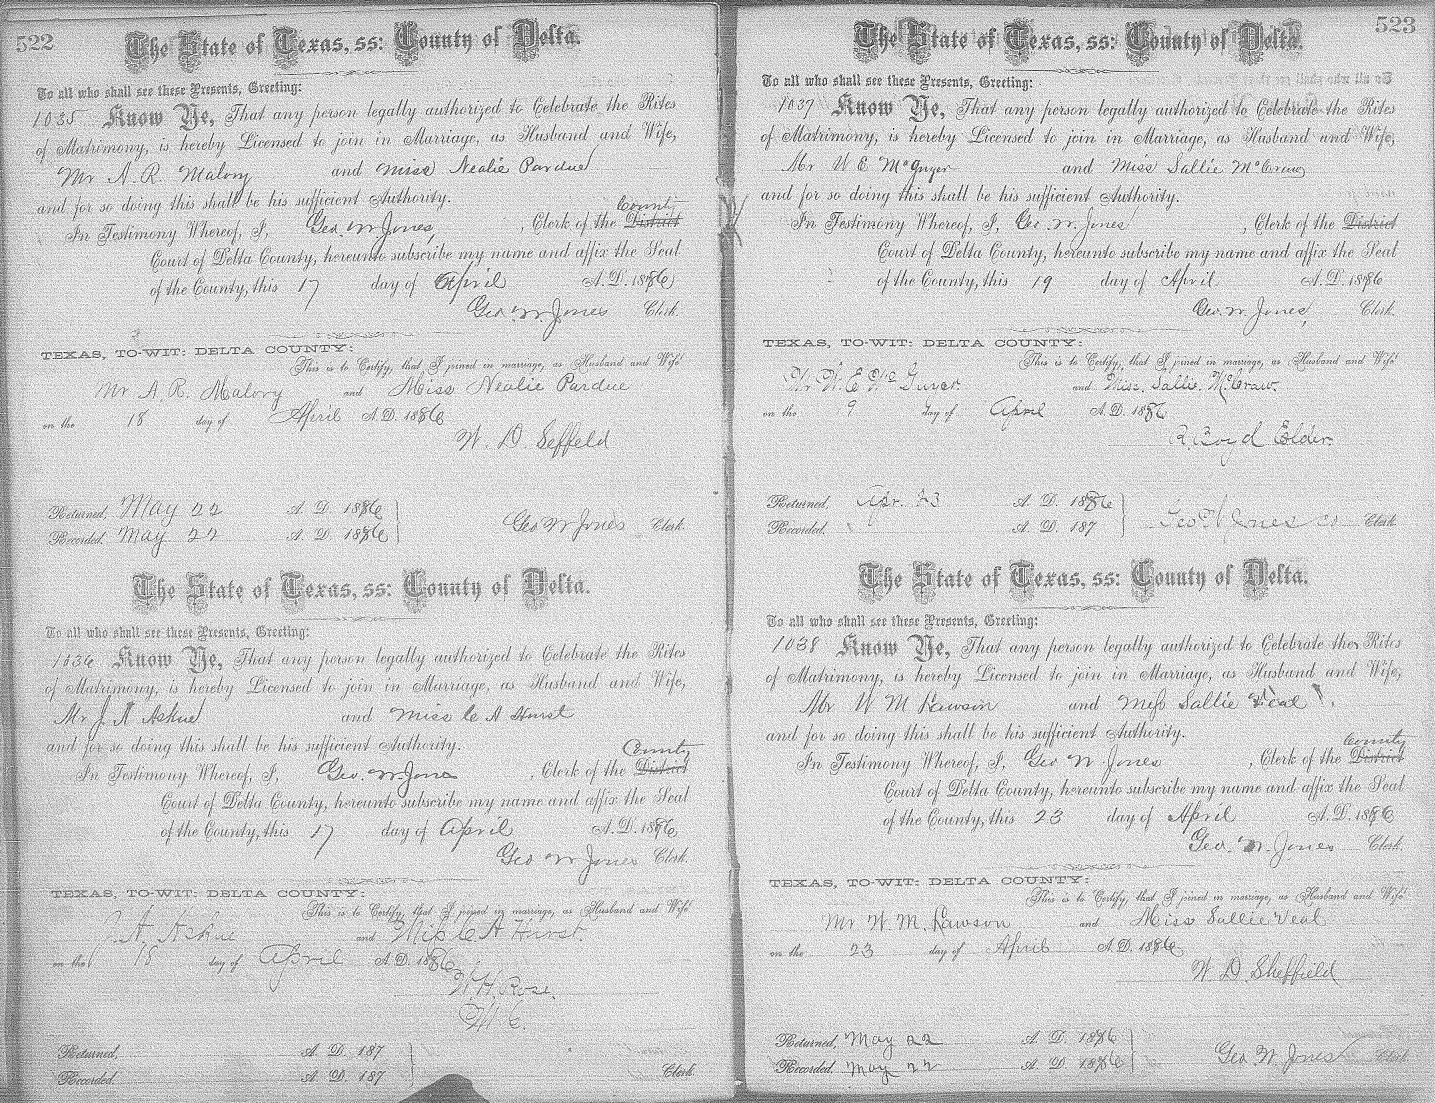 522
The State of Texas, ss: County of Delta.
To all who shall see these Presents, Greeting:
1035 Know Ye, That any person legally authorized to Celebrate the Rites
of Matrimony, is hereby Licensed to join in Marriage, as Husband and Wife,
Mr A. R. Malory and Miss Nealie Pardue
and for so doing this shall be his sufficient Authority.
County
In Testimony Whereof, I, Geo. W Jones, , Clerk of the District
Court of Delta County, hereunto subscribe my name and affix the Seal
of the County, this 17 day of April A. D. 1886
Geo. W Jones Clerk.
TEXAS, TO-WIT: DELTA COUNTY:
This is to Certify, that I joined in marriage, as Husband and Wife
Mr A. R. Malory and Miss Nealie Pardue
on the 18 day of April A. D. 1886
W. D. Seffeld
Returned, May 22 A. D. 1886
Recorded. May 22 A. D. 1886
Geo W Jones Clerk
The State of Texas, ss: County of Delta.
To all who shall see these Presents, Greeting:
1036 Know Ye, That any person legally authorized to Celebrate the Rites
of Matrimony, is hereby Licensed to join in Marriage, as Husband and Wife,
Mr J. A Askue and Miss C A Hurst
and for so doing this shall be his sufficient Authority.
County
In Testimony Whereof, I, Geo. W. Jones , Clerk of the District
Court of Delta County, hereunto subscribe my name and affix the Seal
of the County, this 17 day of April A. D. 1886
Geo W Jones Clerk.
TEXAS, TO-WIT: DELTA COUNTY:
This is to Certify, that I joined in marriage, as Husband and Wife
J. A Askue and Miss C A Hurst.
on the 18 day of April A. D. 1886
W. H. Rose.
M. E.
Returned, A. D. 187
Recorded. A. D. 187
Clerk
523
The State of Texas, ss: County of Delta.
To all who shall see these Presents, Greeting:
1037 Know Ye, That any person legally authorized to Celebrate the Rites
of Matrimony, is hereby Licensed to join in Marriage, as Husband and Wife,
Mr W E McGuyer and Miss Sallie McCraw
and for so doing this shall be his sufficient Authority.
In Testimony Whereof, I, Geo. W. Jones , Clerk of the District
Court of Delta County, hereunto subscribe my name and affix the Seal
of the County, this 19 day of April A. D. 1886
Geo. W. Jones, Clerk.
TEXAS, TO-WIT: DELTA COUNTY:
This is to Certify, that I joined in marriage, as Husband and Wife
Mr. W. E. McGuyer and Miss. Sallie. McCraw.
on the 19 day of April A. D. 1886
R. Boyd Elder.
Returned, Apr. 23 A. D. 1886
Recorded. A. D. 187
Geo W Jones co Clerk
The State of Texas, ss: County of Delta.
To all who shall see these Presents, Greeting:
1038 Know Ye, That any person legally authorized to Celebrate the Rites
of Matrimony, is hereby Licensed to join in Marriage, as Husband and Wife,
Mr W M Rawson and Miss Sallie Veal
and for so doing this shall be his sufficient Authority.
County
In Testimony Whereof, I, Geo W. Jones , Clerk of the District
Court of Delta County, hereunto subscribe my name and affix the Seal
of the County, this 23 day of April A. D. 1886
Geo. W. Jones Clerk.
TEXAS, TO-WIT: DELTA COUNTY:
This is to Certify, that I joined in marriage, as Husband and Wife
Mr W. M. Rawson and Miss Sallie Veal
on the 23 day of April A. D. 1886
W. D. Sheffield
Returned, May 22 A. D. 1886
Recorded. May 22 A. D. 1886
Geo W. Jones Clerk